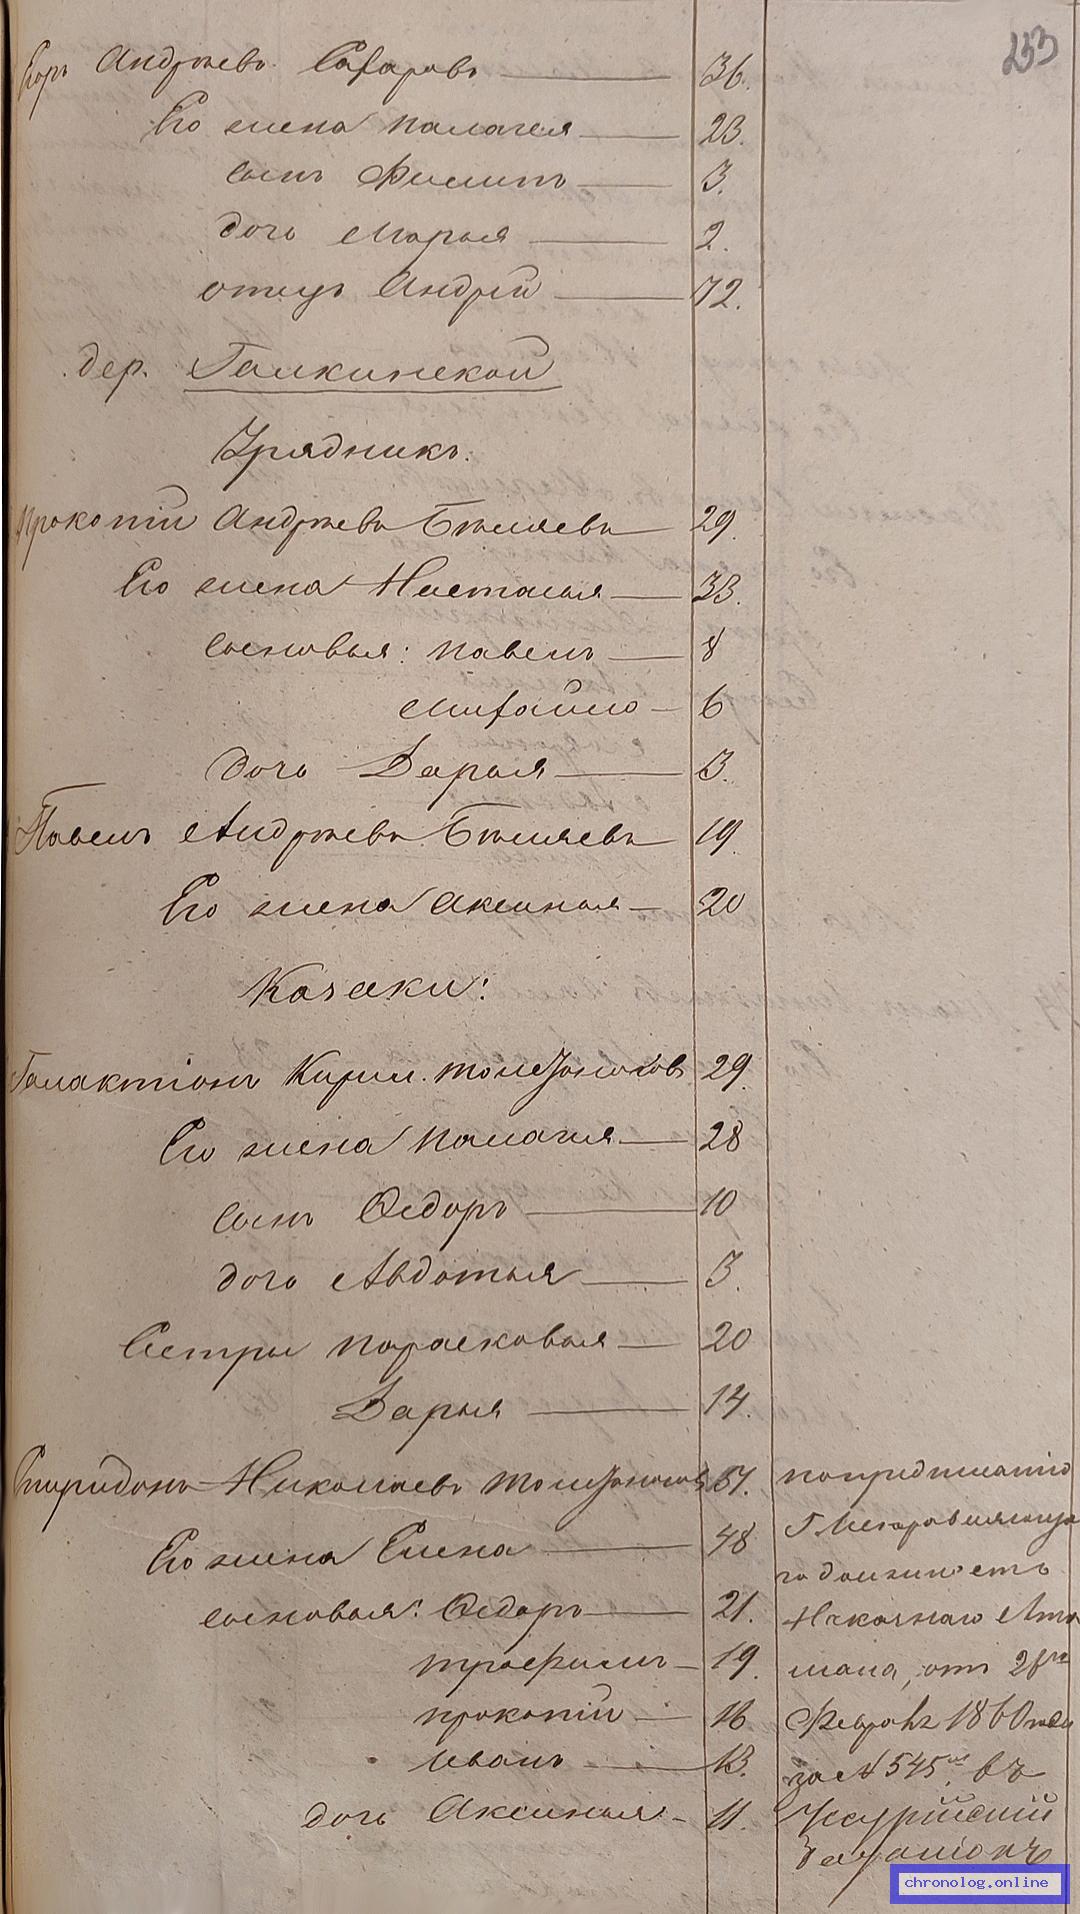 253
Егоръ Андреевъ Сафаровъ 36.
Его жена Палагея 23.
сынъ Филипъ 3.
дочь Марья 2.
отецъ Андрей 72.
дер. Галкинской
Урядникъ.
Прокопій Андреевъ Бѣляевъ 29.
Его жена Настасья 33.
сыновья: Павелъ 8
Михайло 6
дочь Дарья 3.
Павелъ Андреевъ Бѣляевъ 19.
Его жена Аксинья 20
Казаки:
Галактіонъ Кирил. Толстоноговъ 29.
Его жена Палагея 28
сынъ Ѳедоръ 10
дочь Авдотья 3.
Сестры Парасковья 20
Дарья 14.
Спиридонъ Николаевъ Толстоноговъ 51.
Его жена Елена 48
сыновья: Ѳедоръ 21.
Трофимъ 19.
Прокопій 16
Иванъ 13.
дочь Аксинья 11.
по предписанію
Г. Исправляюща
го должность
Наказнаго Ата
мана, отъ 28го
Февраля 1860 года
за № 545м, въ
Уссурійскій
баталіонъ
chronolog.online